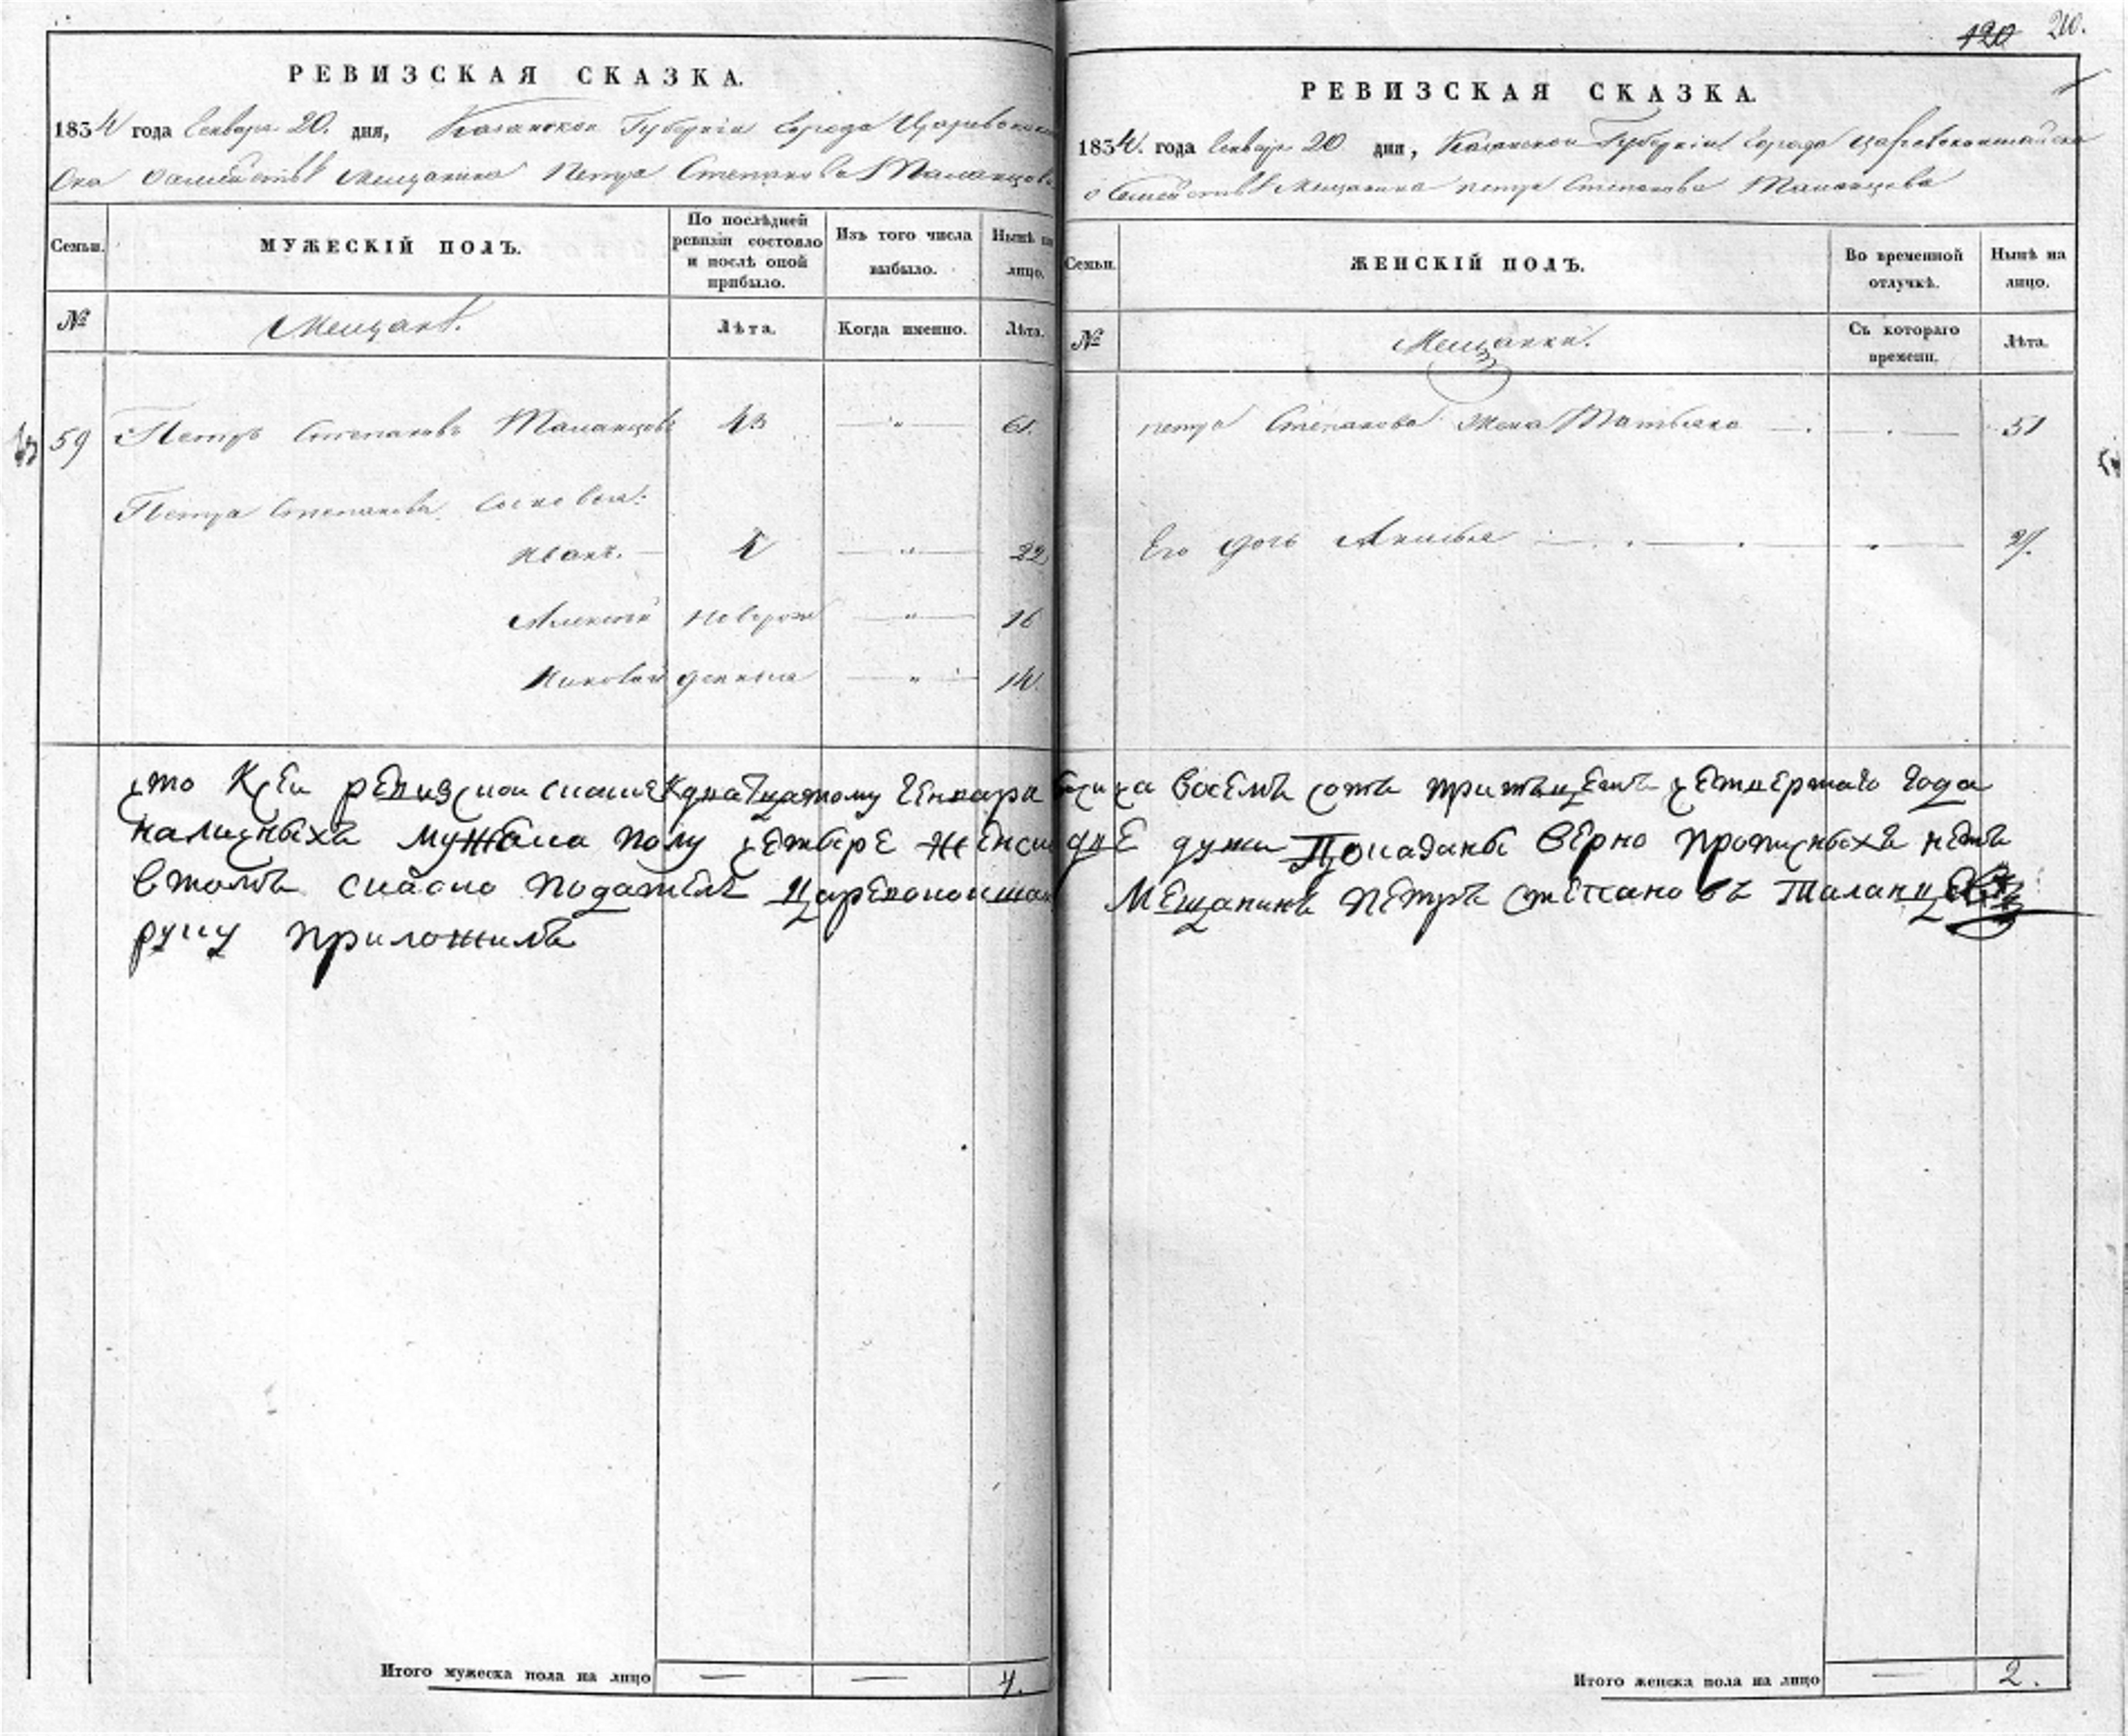 РЕВИЗСКАЯ СКАЗКА.
1834 года Генваря 20. дня, Казанской Губернии города Царевококшай
ска о семействѣ Мещанина Петра Степанова Таланцова
Семьи.
МУЖЕСКІЙ ПОЛЪ.
По послѣдней ревизіи состояло и послѣ оной прибыло.
Изъ того числа выбыло.
Нынѣ на лицо.
№
Мещане.
Лѣта.
Когда именно.
Лѣта.
59 Петръ Степановъ Таланцовъ 43 — " — 61.
Петра Степанова сыновья:
Иванъ. — 4 — " — 22
Алексей Новорож — " — 16
Николай денныя — " — 14.
Итого мужеска пола на лицо — — 4.
120 210.
РЕВИЗСКАЯ СКАЗКА.
1834. года Генваря 20 дня, Казанской Губерніи города Царевококшайска
о Семействѣ Мещанина Петра Степанова Таланцова
Семьи.
ЖЕНСКІЙ ПОЛЪ.
Во временной отлучкѣ.
Нынѣ на лицо.
№
Мещанки.
Съ котораго времени.
Лѣта.
Петра Степанова Жена Татьяна — . — . — 51
Его дочь
Итого женска пола на лицо — 2.
что к сей ревизской сказке к двадцатому генваря тысяча восемь сотъ тритцеть четвертаго года
наличныхъ мужеска полу четыре женска две души показаны верно прописныхъ нетъ
в томъ сказко податель Царевококшай Мещанинъ Петръ Степановъ Таланцевъ
руку приложилъ